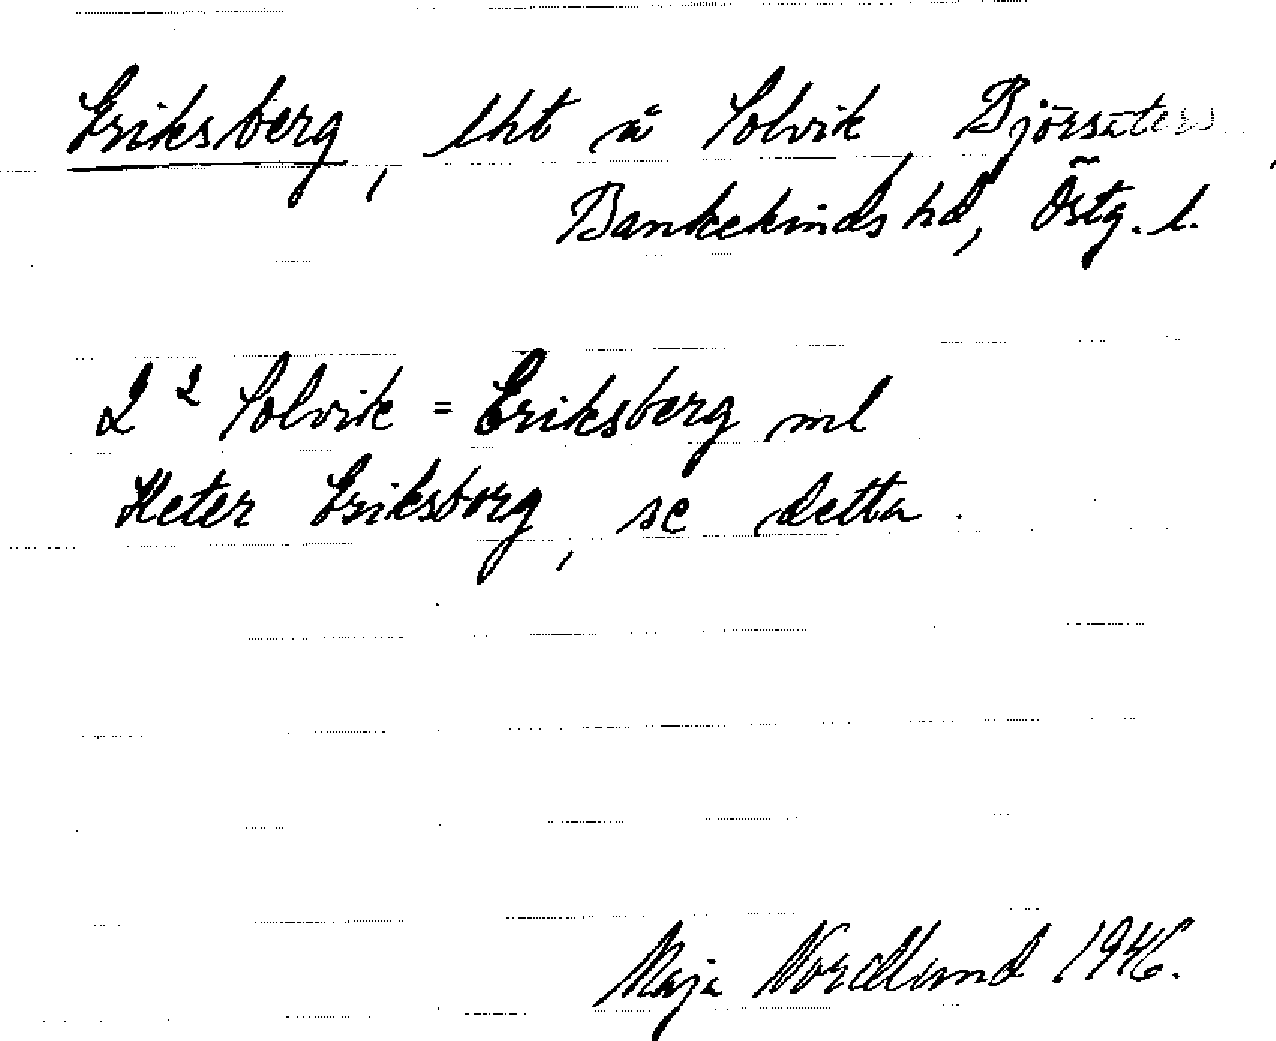 Eriksberg, lht å Solvik, Björsäters
Bankekinds hd, Östg. l.
2² Solvik = Eriksberg ml
Heter Eriksborg, se detta.
Maja Nordlund 1946.